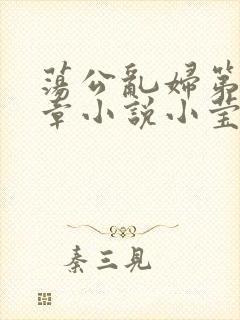 蕩公亂婦第
章小說小莹
秦三見